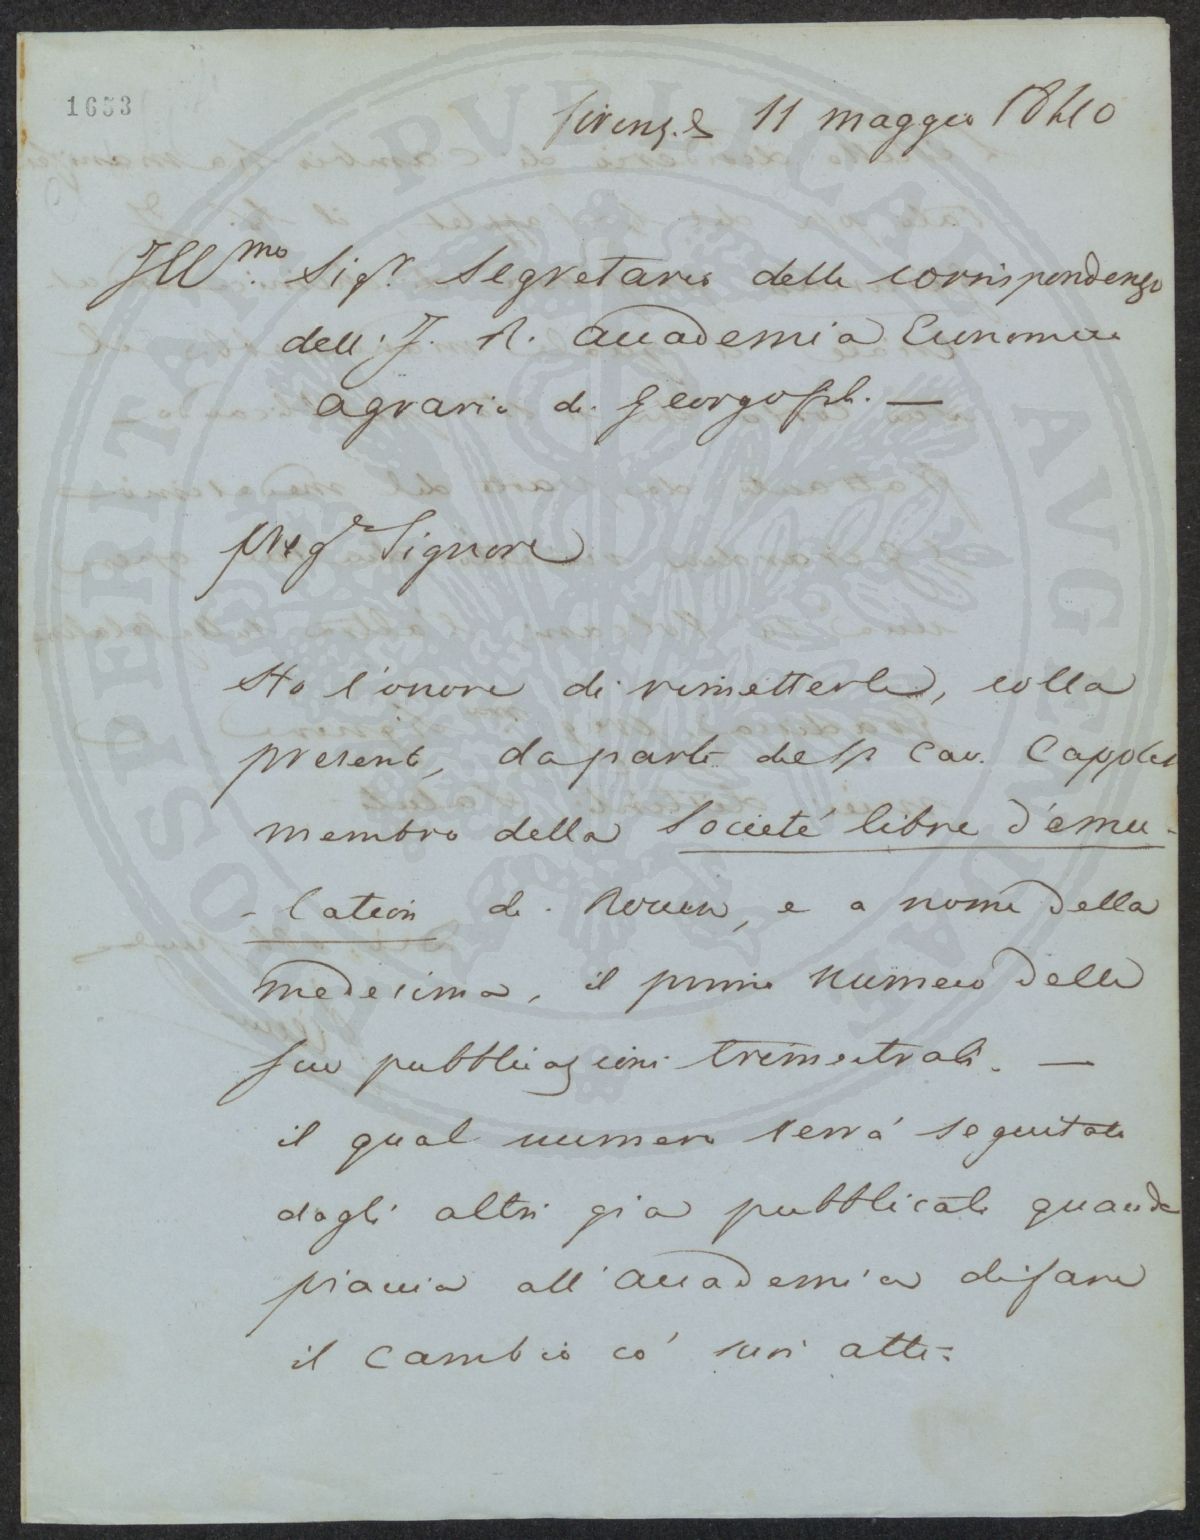 1653
Firenze 11 maggio 1840
Ill.mo Sigr. Segretario delle corrispondenze
dell' I. R. Accademia Economico
agraria di Georgofili. —
Preg.e Signore
Ho l'onore di rimetterle, colla
presente, da parte del Sr. Cav. Capplet
membro della Societé libre d'ému-
-lation di Rouen, e a nome della
medesima, il primo numero delle
sue pubblicazioni trimestrali. —
il qual numero verrà seguitato
dagli altri gia pubblicati quando
piaccia all'Accademia di fare
il cambio co' suoi atti.
PROSPERITATI PVBLICAE AVGENDAE